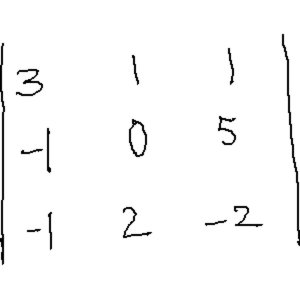 3 1 1
-1 0 5
-1 2 -2